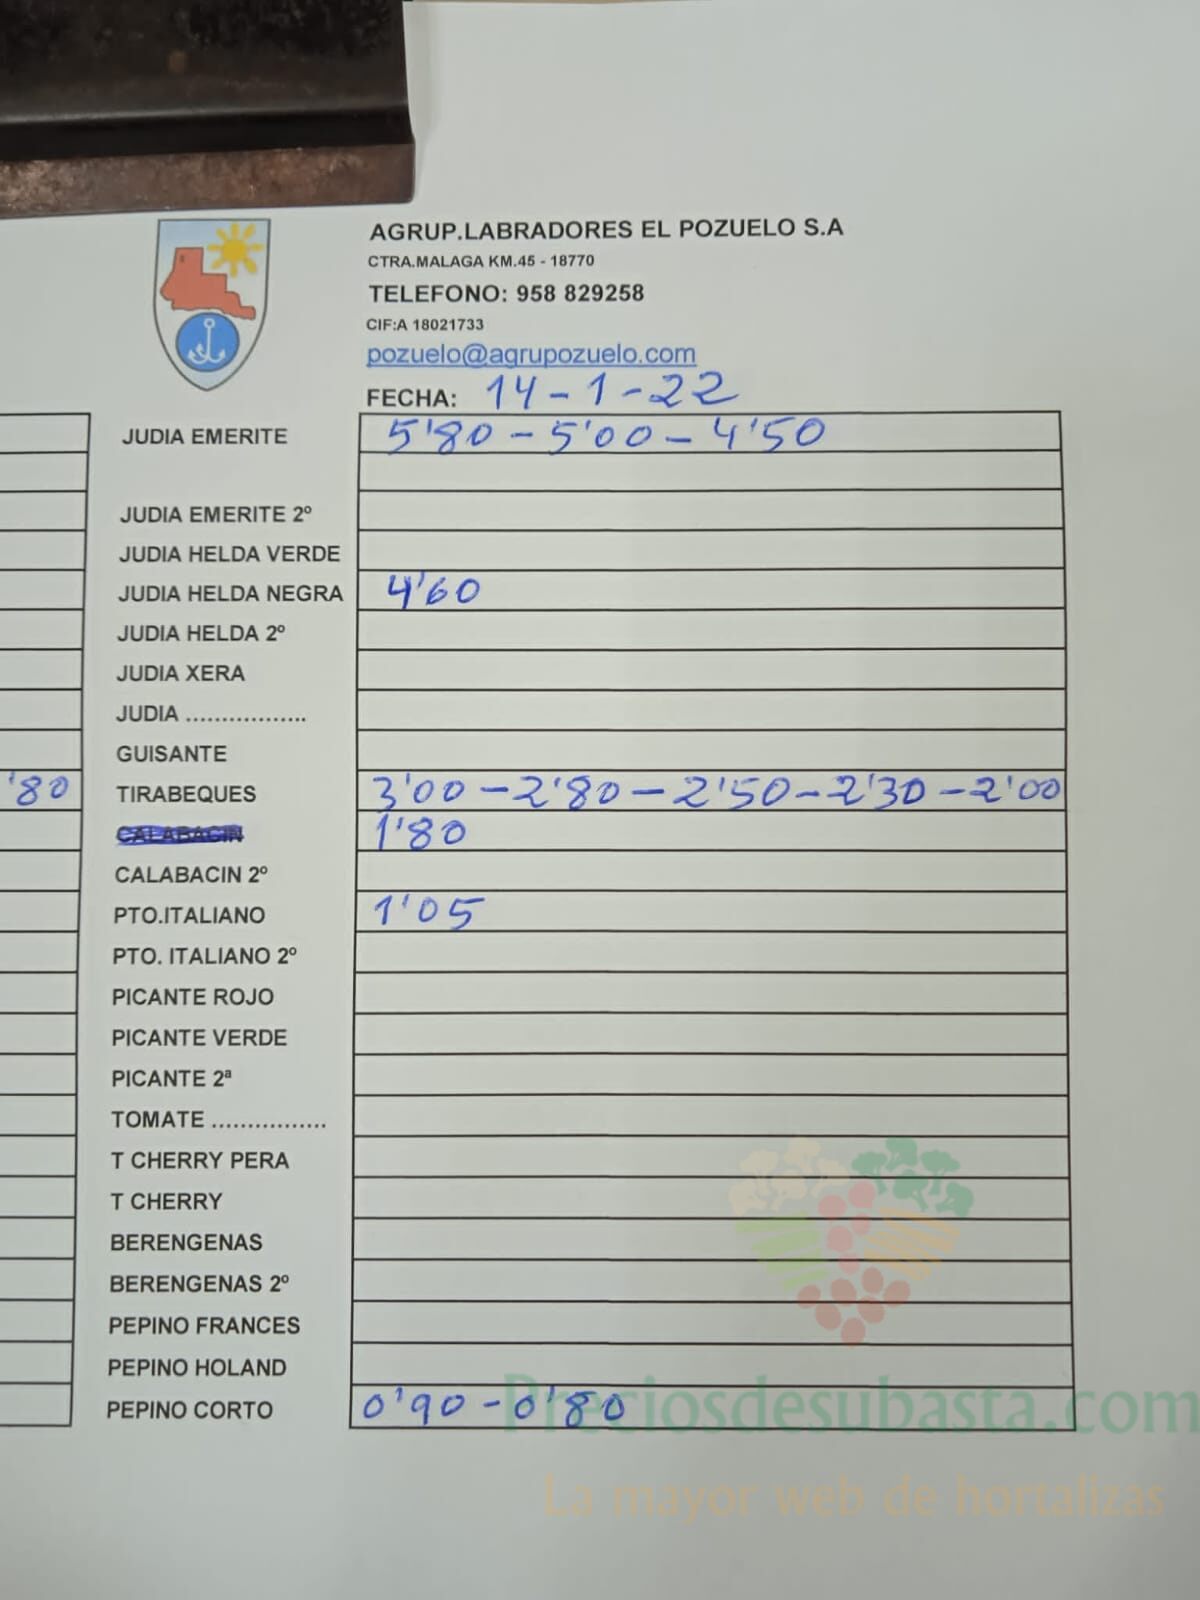 AGRUP.LABRADORES EL POZUELO S.A
CTRA.MALAGA KM.45 - 18770
TELEFONO: 958 829258
CIF:A 18021733
pozuelo@agrupozuelo.com
FECHA: 14-1-22
JUDIA EMERITE 5'80 - 5'00 - 4'50
JUDIA EMERITE 2º
JUDIA HELDA VERDE
JUDIA HELDA NEGRA 4'60
JUDIA HELDA 2º
JUDIA XERA
JUDIA .................
GUISANTE
'80 TIRABEQUES 3'00 - 2'80 - 2'50 - 2'30 - 2'00
CALABACIN 1'80
CALABACIN 2º
PTO.ITALIANO 1'05
PTO. ITALIANO 2º
PICANTE ROJO
PICANTE VERDE
PICANTE 2ª
TOMATE ................
T CHERRY PERA
T CHERRY
BERENGENAS
BERENGENAS 2º
PEPINO FRANCES
PEPINO HOLAND
PEPINO CORTO 0'90 - 0'80
Preciosdesubasta.com
La mayor web de hortalizas